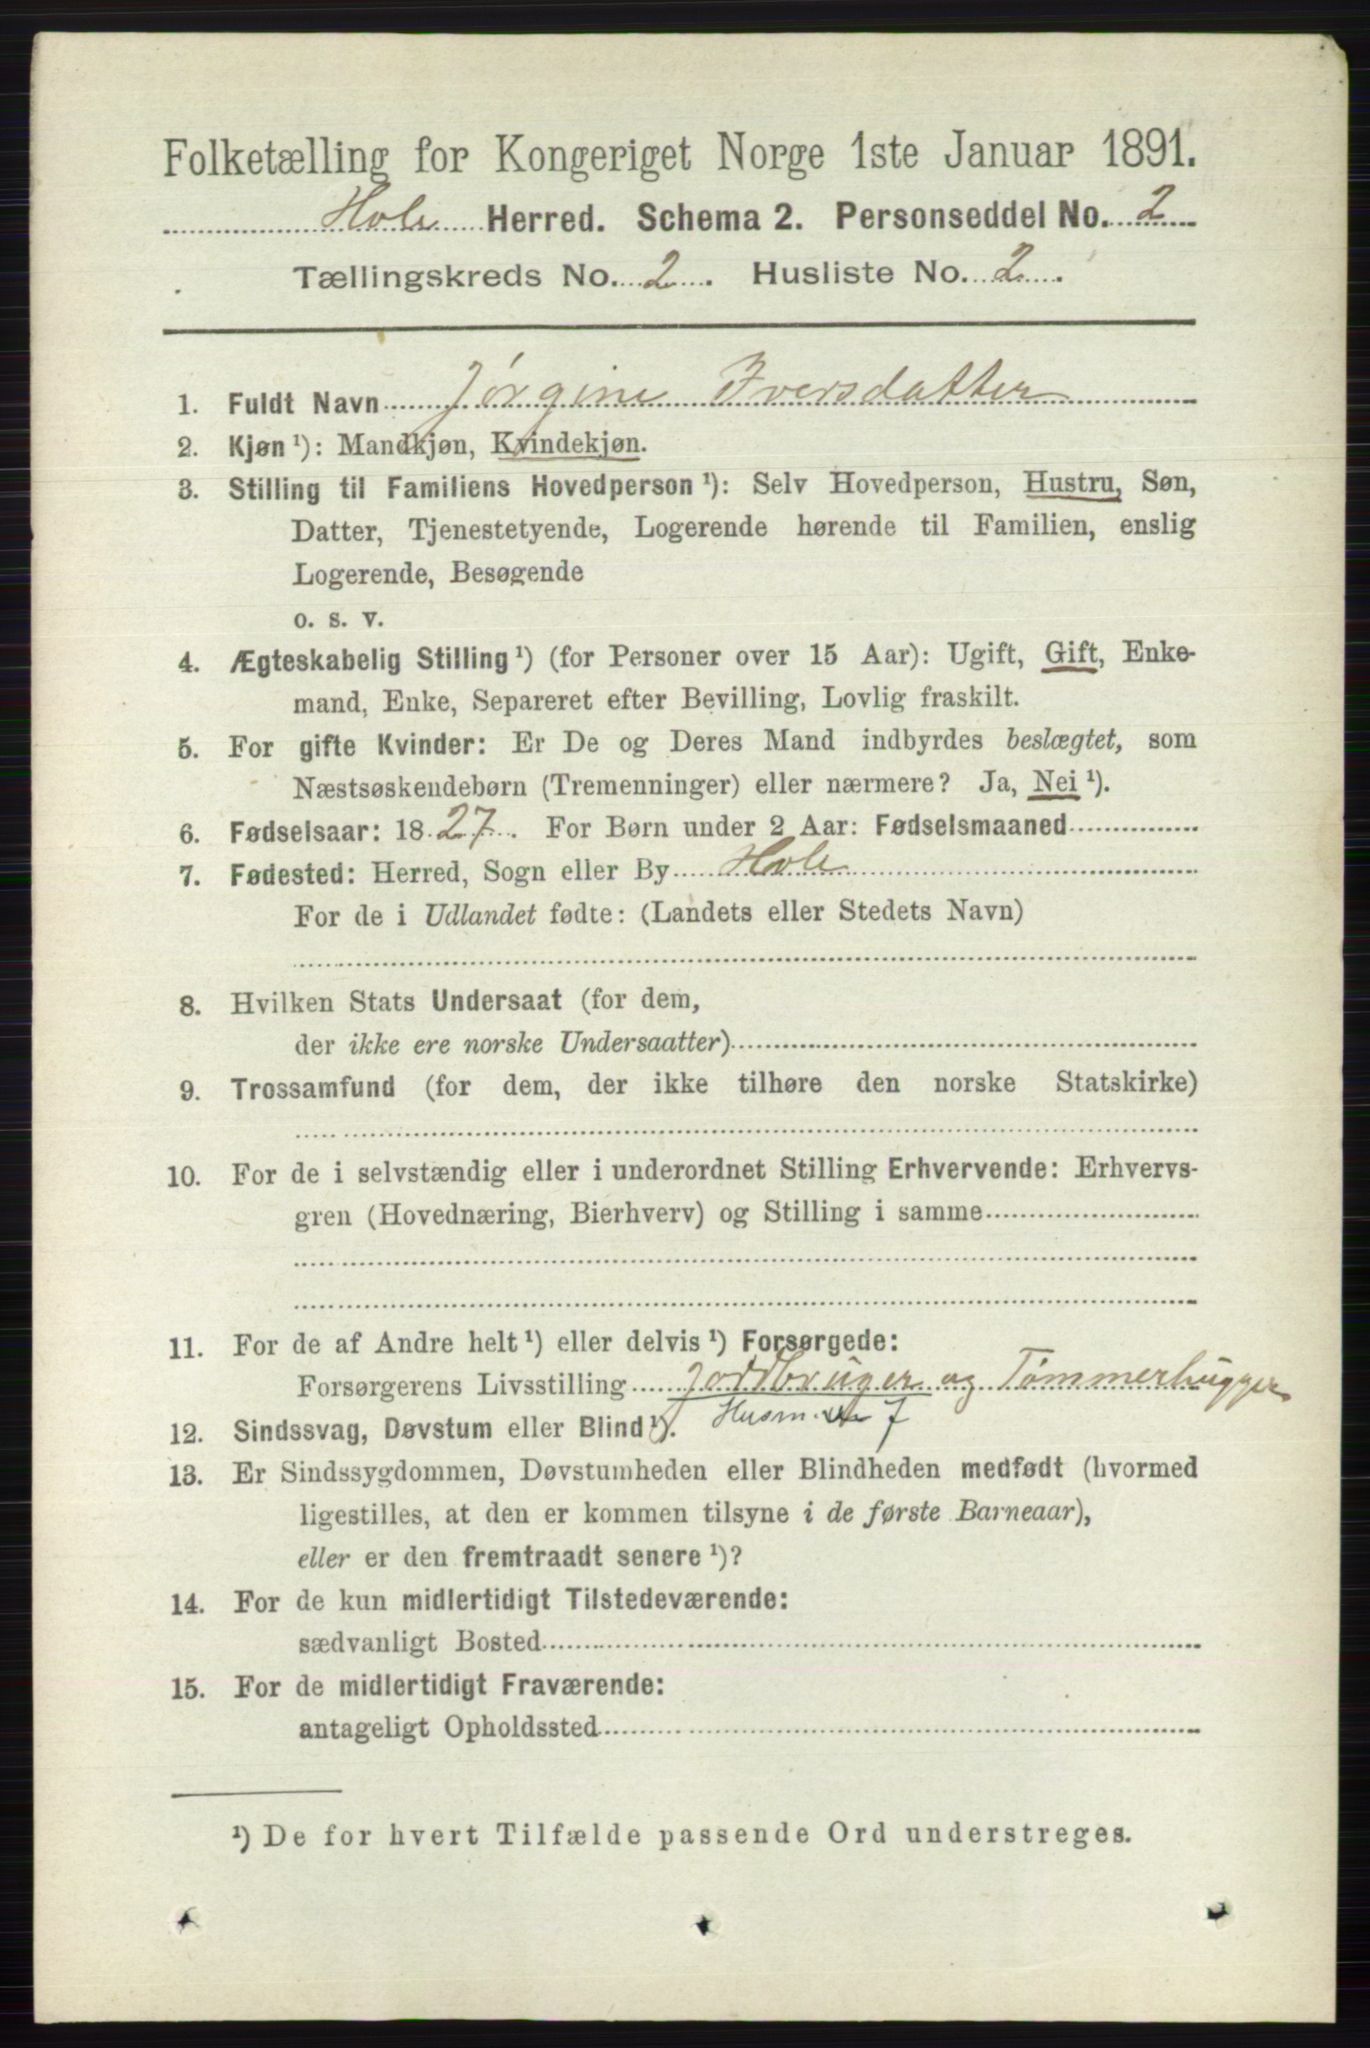 Folketælling for Kongeriget Norge 1ste Januar 1891.
Hole Herred. Schema 2. Personseddel No. 2
Tællingskreds No. 2. Husliste No. 2.
1. Fuldt Navn Jørgine Iversdatter
2. Kjøn ¹): Mandkjøn, Kvindekjøn.
3. Stilling til Familiens Hovedperson ¹): Selv Hovedperson, Hustru, Søn,
Datter, Tjenestetyende, Logerende hørende til Familien, enslig
Logerende, Besøgende
o. s. v.
4. Ægteskabelig Stilling ¹) (for Personer over 15 Aar): Ugift, Gift, Enke-
mand, Enke, Separeret efter Bevilling, Lovlig fraskilt.
5. For gifte Kvinder: Er De og Deres Mand indbyrdes beslægtet, som
Næstsøskendebørn (Tremenninger) eller nærmere? Ja, Nei ¹).
6. Fødselsaar: 1827. For Børn under 2 Aar: Fødselsmaaned
7. Fødested: Herred, Sogn eller By Hole
For de i Udlandet fødte: (Landets eller Stedets Navn)
8. Hvilken Stats Undersaat (for dem,
der ikke ere norske Undersaatter)
9. Trossamfund (for dem, der ikke tilhøre den norske Statskirke)
10. For de i selvstændig eller i underordnet Stilling Erhvervende: Erhvervs-
gren (Hovednæring, Bierhverv) og Stilling i samme
11. For de af Andre helt ¹) eller delvis ¹) Forsørgede:
Forsørgerens Livsstilling Jordbruger og Tømmerhugger
12. Sindssvag, Døvstum eller Blind ¹). Husm. 7
13. Er Sindssygdommen, Døvstumheden eller Blindheden medfødt (hvormed
ligestilles, at den er kommen tilsyne i de første Barneaar),
eller er den fremtraadt senere ¹)?
14. For de kun midlertidigt Tilstedeværende:
sædvanligt Bosted
15. For de midlertidigt Fraværende:
antageligt Opholdssted
¹) De for hvert Tilfælde passende Ord understreges.